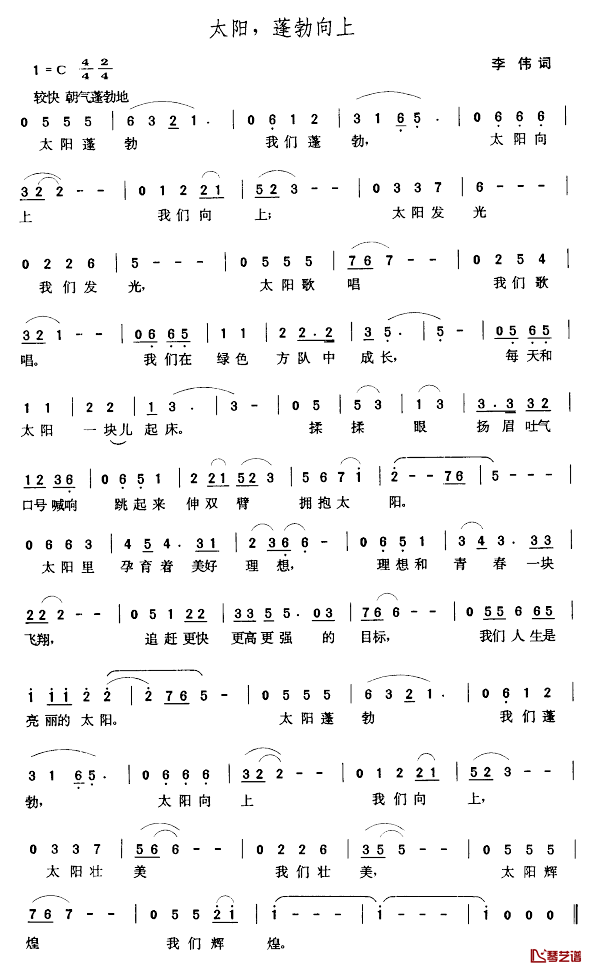 太阳，蓬勃向上
1=C 4/4 2/4 李 伟 词
较快 朝气蓬勃地
0 5 5 5 | 6 3 2 1 · | 0 6 1 2 | 3 1 6 5 · | 0 6 6 6 |
太 阳 蓬 勃 我 们 蓬 勃, 太 阳 向
3 2 2 - - | 0 1 2 2 1 | 5 2 3 - - | 0 3 3 7 | 6 - - - |
上 我 们 向 上; 太 阳 发 光
0 2 2 6 | 5 - - - | 0 5 5 5 | 7 6 7 - - | 0 2 5 4 |
我 们 发 光, 太 阳 歌 唱 我 们 歌
3 2 1 - - | 0 6 6 5 | 1 1 | 2 2 . 2 | 3 5 · | 5 - | 0 5 6 5 |
唱。 我 们 在 绿 色 方 队 中 成 长, 每 天 和
1 1 | 2 2 | 1 3 · | 3 - | 0 5 | 5 3 | 1 3 | 3 . 3 3 2 |
太 阳 一 块 儿 起 床。 揉 揉 眼 扬 眉 吐 气
1 2 3 6 | 0 6 5 1 | 2 2 1 5 2 3 | 5 6 7 1 | 2 - - 7 6 | 5 - - - |
口 号 喊 响 跳 起 来 伸 双 臂 拥 抱 太 阳。
0 6 6 3 | 4 5 4 . 3 1 | 2 3 6 - | 0 6 5 1 | 3 4 3 . 3 3 |
太 阳 里 孕 育 着 美 好 理 想, 理 想 和 青 春 一 块
2 2 2 - - | 0 5 1 2 2 | 3 3 5 5 . 0 3 | 7 6 6 - | 0 5 5 6 6 5 |
飞 翔, 追 赶 更 快 更 高 更 强 的 目 标, 我 们 人 生 是
1 1 1 2 2 | 2 7 6 5 - | 0 5 5 5 | 6 3 2 1 · | 0 6 1 2 |
亮 丽 的 太 阳。 太 阳 蓬 勃 我 们 蓬
3 1 6 5 · | 0 6 6 6 | 3 2 2 - - | 0 1 2 2 1 | 5 2 3 - - |
勃, 太 阳 向 上 我 们 向 上,
0 3 3 7 | 5 6 6 - - | 0 2 2 6 | 3 5 5 - - | 0 5 5 5 |
太 阳 壮 美 我 们 壮 美, 太 阳 辉
7 6 7 - - | 0 5 5 2 1 | 1 - - - | 1 - - - | 1 0 0 0 ‖
煌 我 们 辉 煌。
琴艺谱